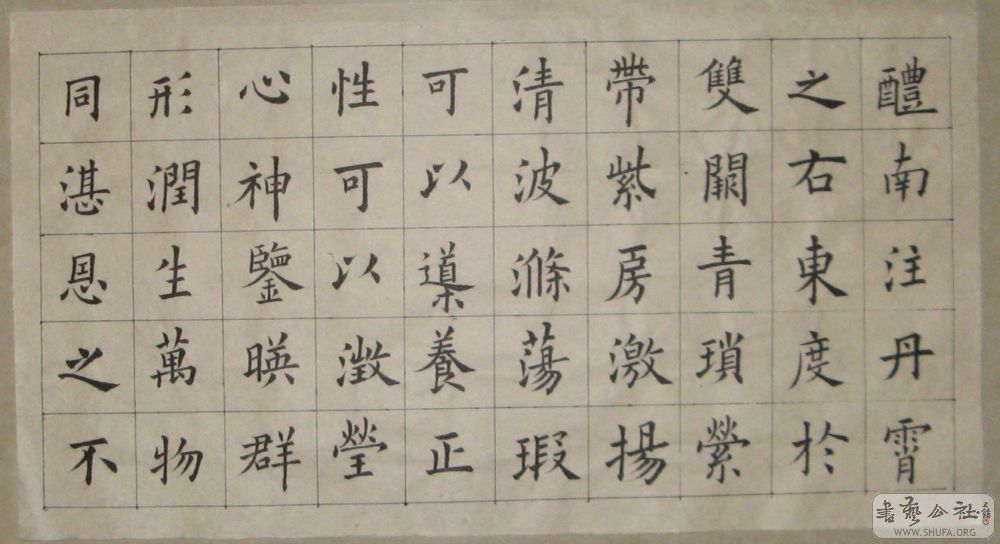 醴南注丹霄
之右東度於
雙闕青瑣縈
帶紫房激揚
清波滌蕩瑕
可以導養正
性可以澂瑩
心神鑒暎群
形潤生萬物
同湛恩之不
書藝公社
WWW.SHUFA.ORG